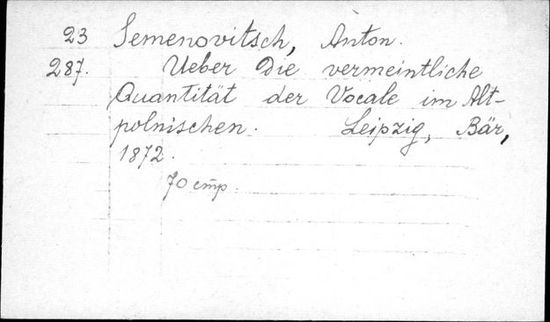 23 Semenovitsch, Anton.
287. Ueber Die vermeintliche
Quantität der Vocale im Alt-
polnischen. Leipzig, Bär,
1872.
70 стр.